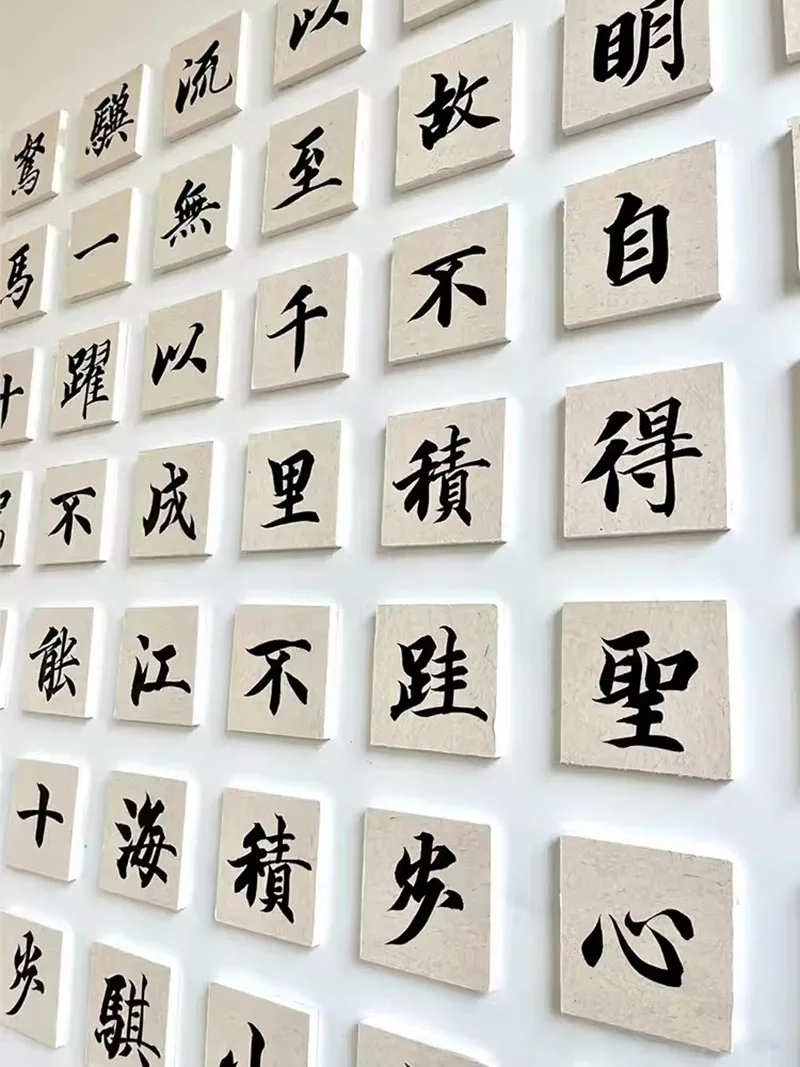 明自得聖心
故不積跬步
以至千里不積
流無以成江海騏
驥一躍不能十步
駑馬十